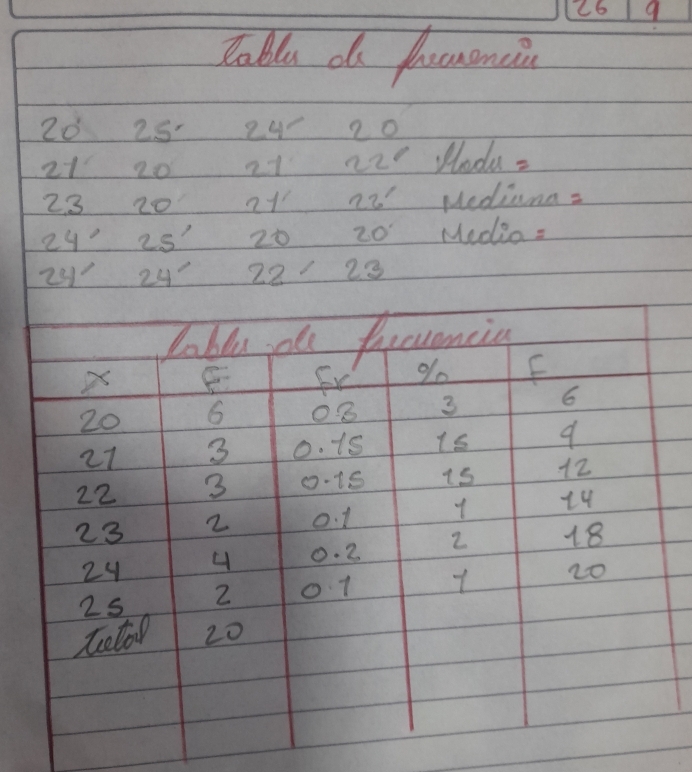 26 9
Tabla de frecuencia
20 25 24 20
21 20 21 22 Moda =
23 20 21 22 Mediana =
24 25 20 20 Media =
24 24 22 23
Tabla de frecuencia
X F Fr % F
20 6 0.3 3 6
21 3 0.15 15 9
22 3 0.15 15 12
23 2 0.1 1 14
24 4 0.2 2 18
25 2 0.1 1 20
Total 20